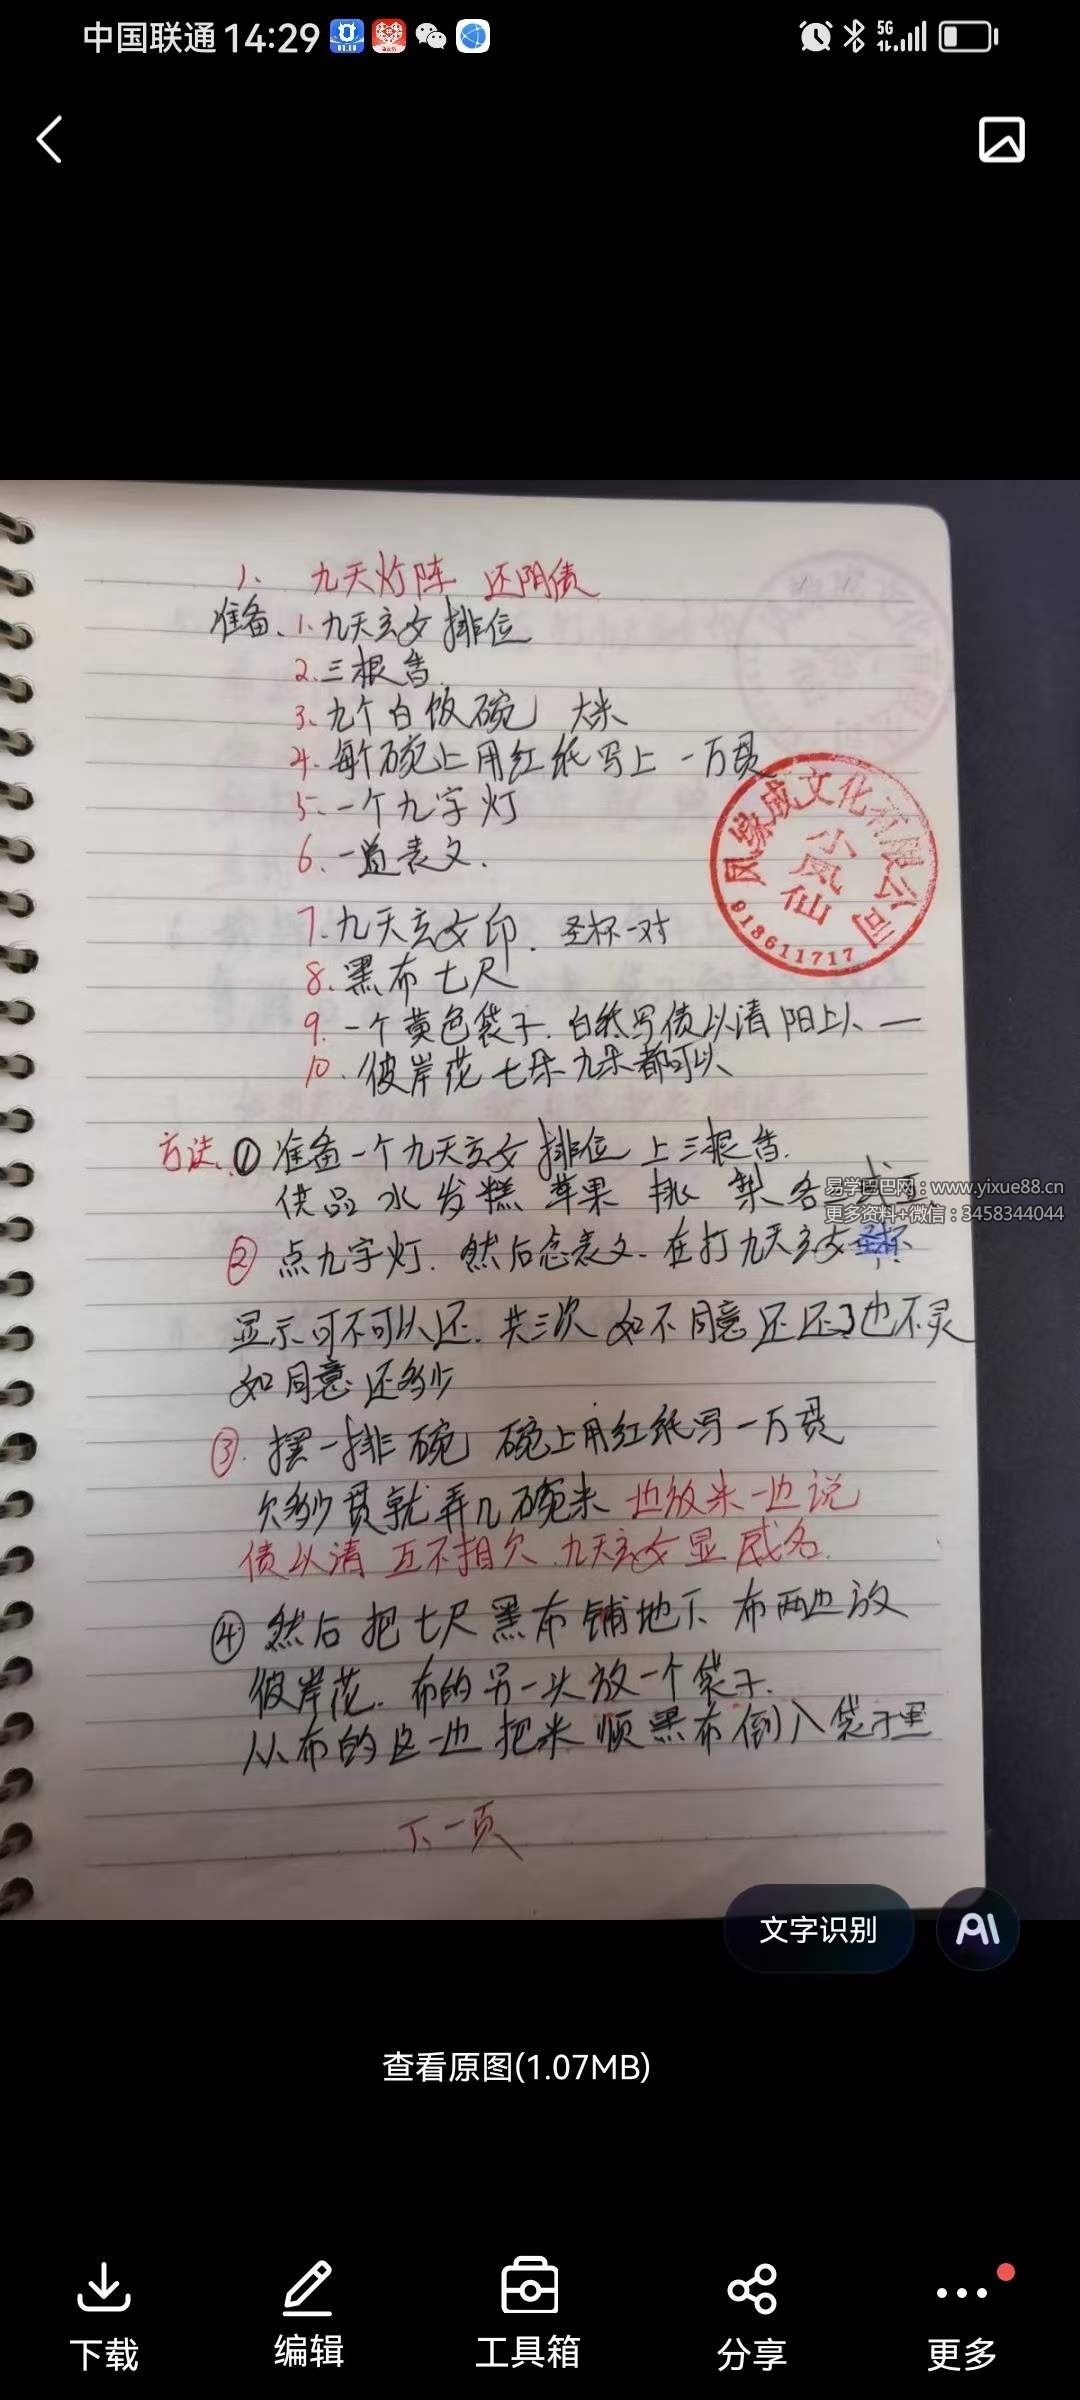 中国联通 14:29
5G
1、 九天灯阵 还阴债
准备、1、九天玄女排位
2、三根香
3、九个白饭碗 大米
4、每个碗上用红纸写上一万贯
5、一个九字灯
6、一道表文.
7、九天玄女印、圣杯一对
8、黑布七尺
9、一个黄色袋子、白纸写债以清 阳上人 —
10、彼岸花 七朵九朵都可以
风缘成文化有限公司
小凤仙
918611717
方法、① 准备一个九天玄女排位 上三根香.
供品 水 发糕 苹果 桃 梨 各三或五
易学巴巴网:www.yixue88.cn
更多资料+微信:3458344044
② 点九字灯、然后念表文、在打九天玄女圣杯
显示可不可以还、共三次 如不同意还还了也不灵
如同意 还多少
③、摆一排碗 碗上用红纸写一万贯
欠多少贯就弄几碗米 边放米一边说
债以清 互不相欠 九天玄女显威名.
④ 然后把七尺黑布铺地下 布两边放
彼岸花、布的另一头放一个袋子.
从布的这一边把米顺黑布倒入袋子里
下一页
文字识别
AI
查看原图(1.07MB)
下载 编辑 工具箱 分享 更多